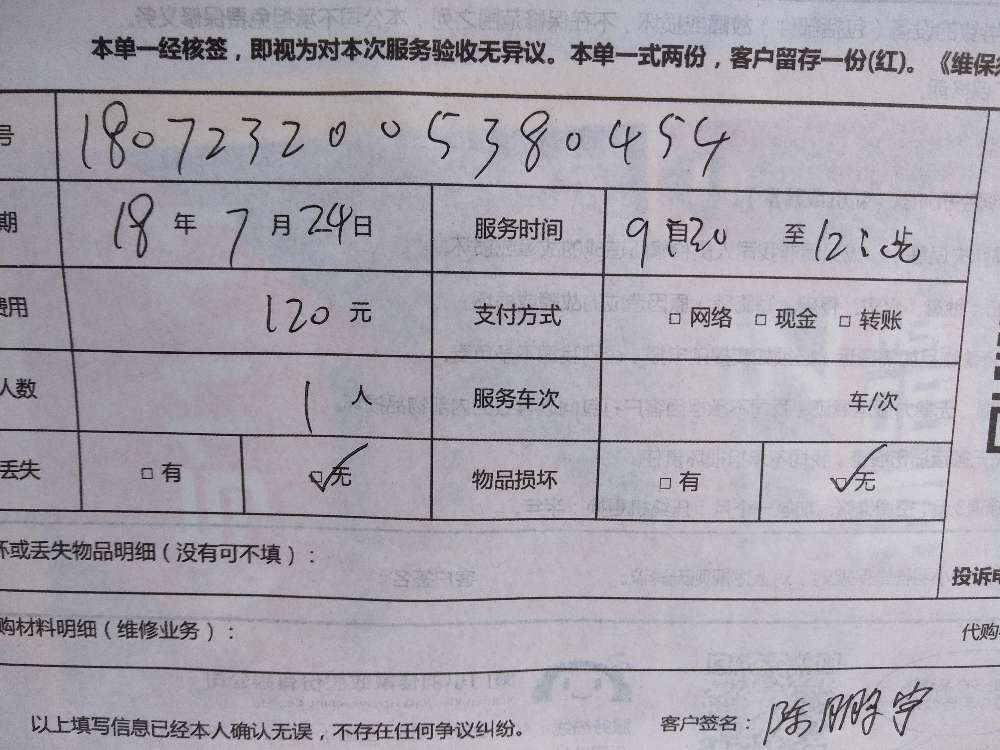 本单一经核签，即视为对本次服务验收无异议。本单一式两份，客户留存一份(红)。《维保
号 1807232005380454
期 18 年 7 月 24 日 服务时间 9:20 至 12:
费用 120 元 支付方式 □ 网络 □ 现金 □ 转账
人数 1 人 服务车次 车/次
丢失 □ 有 □ 无 物品损坏 □ 有 □ 无
坏或丢失物品明细（没有可不填）：
投诉电
购材料明细（维修业务）：
代购
以上填写信息已经本人确认无误，不存在任何争议纠纷。 客户签名：陈鹏宇